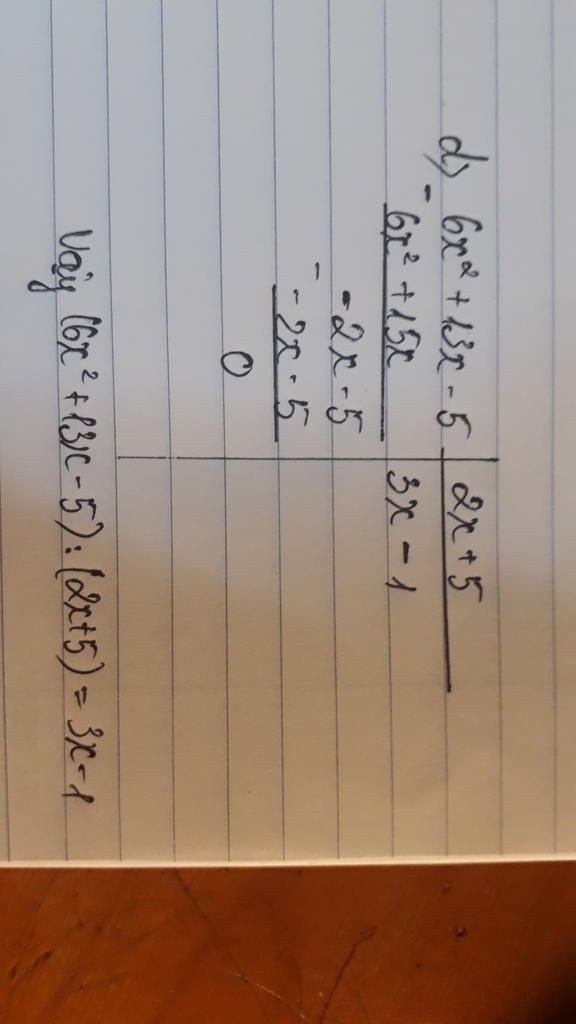 d) 6x² + 13x - 5 | 2x + 5
- 6x² + 15x | 3x - 1
- 2x - 5
- - 2x - 5
0
Vậy (6x² + 13x - 5) : (2x + 5) = 3x - 1